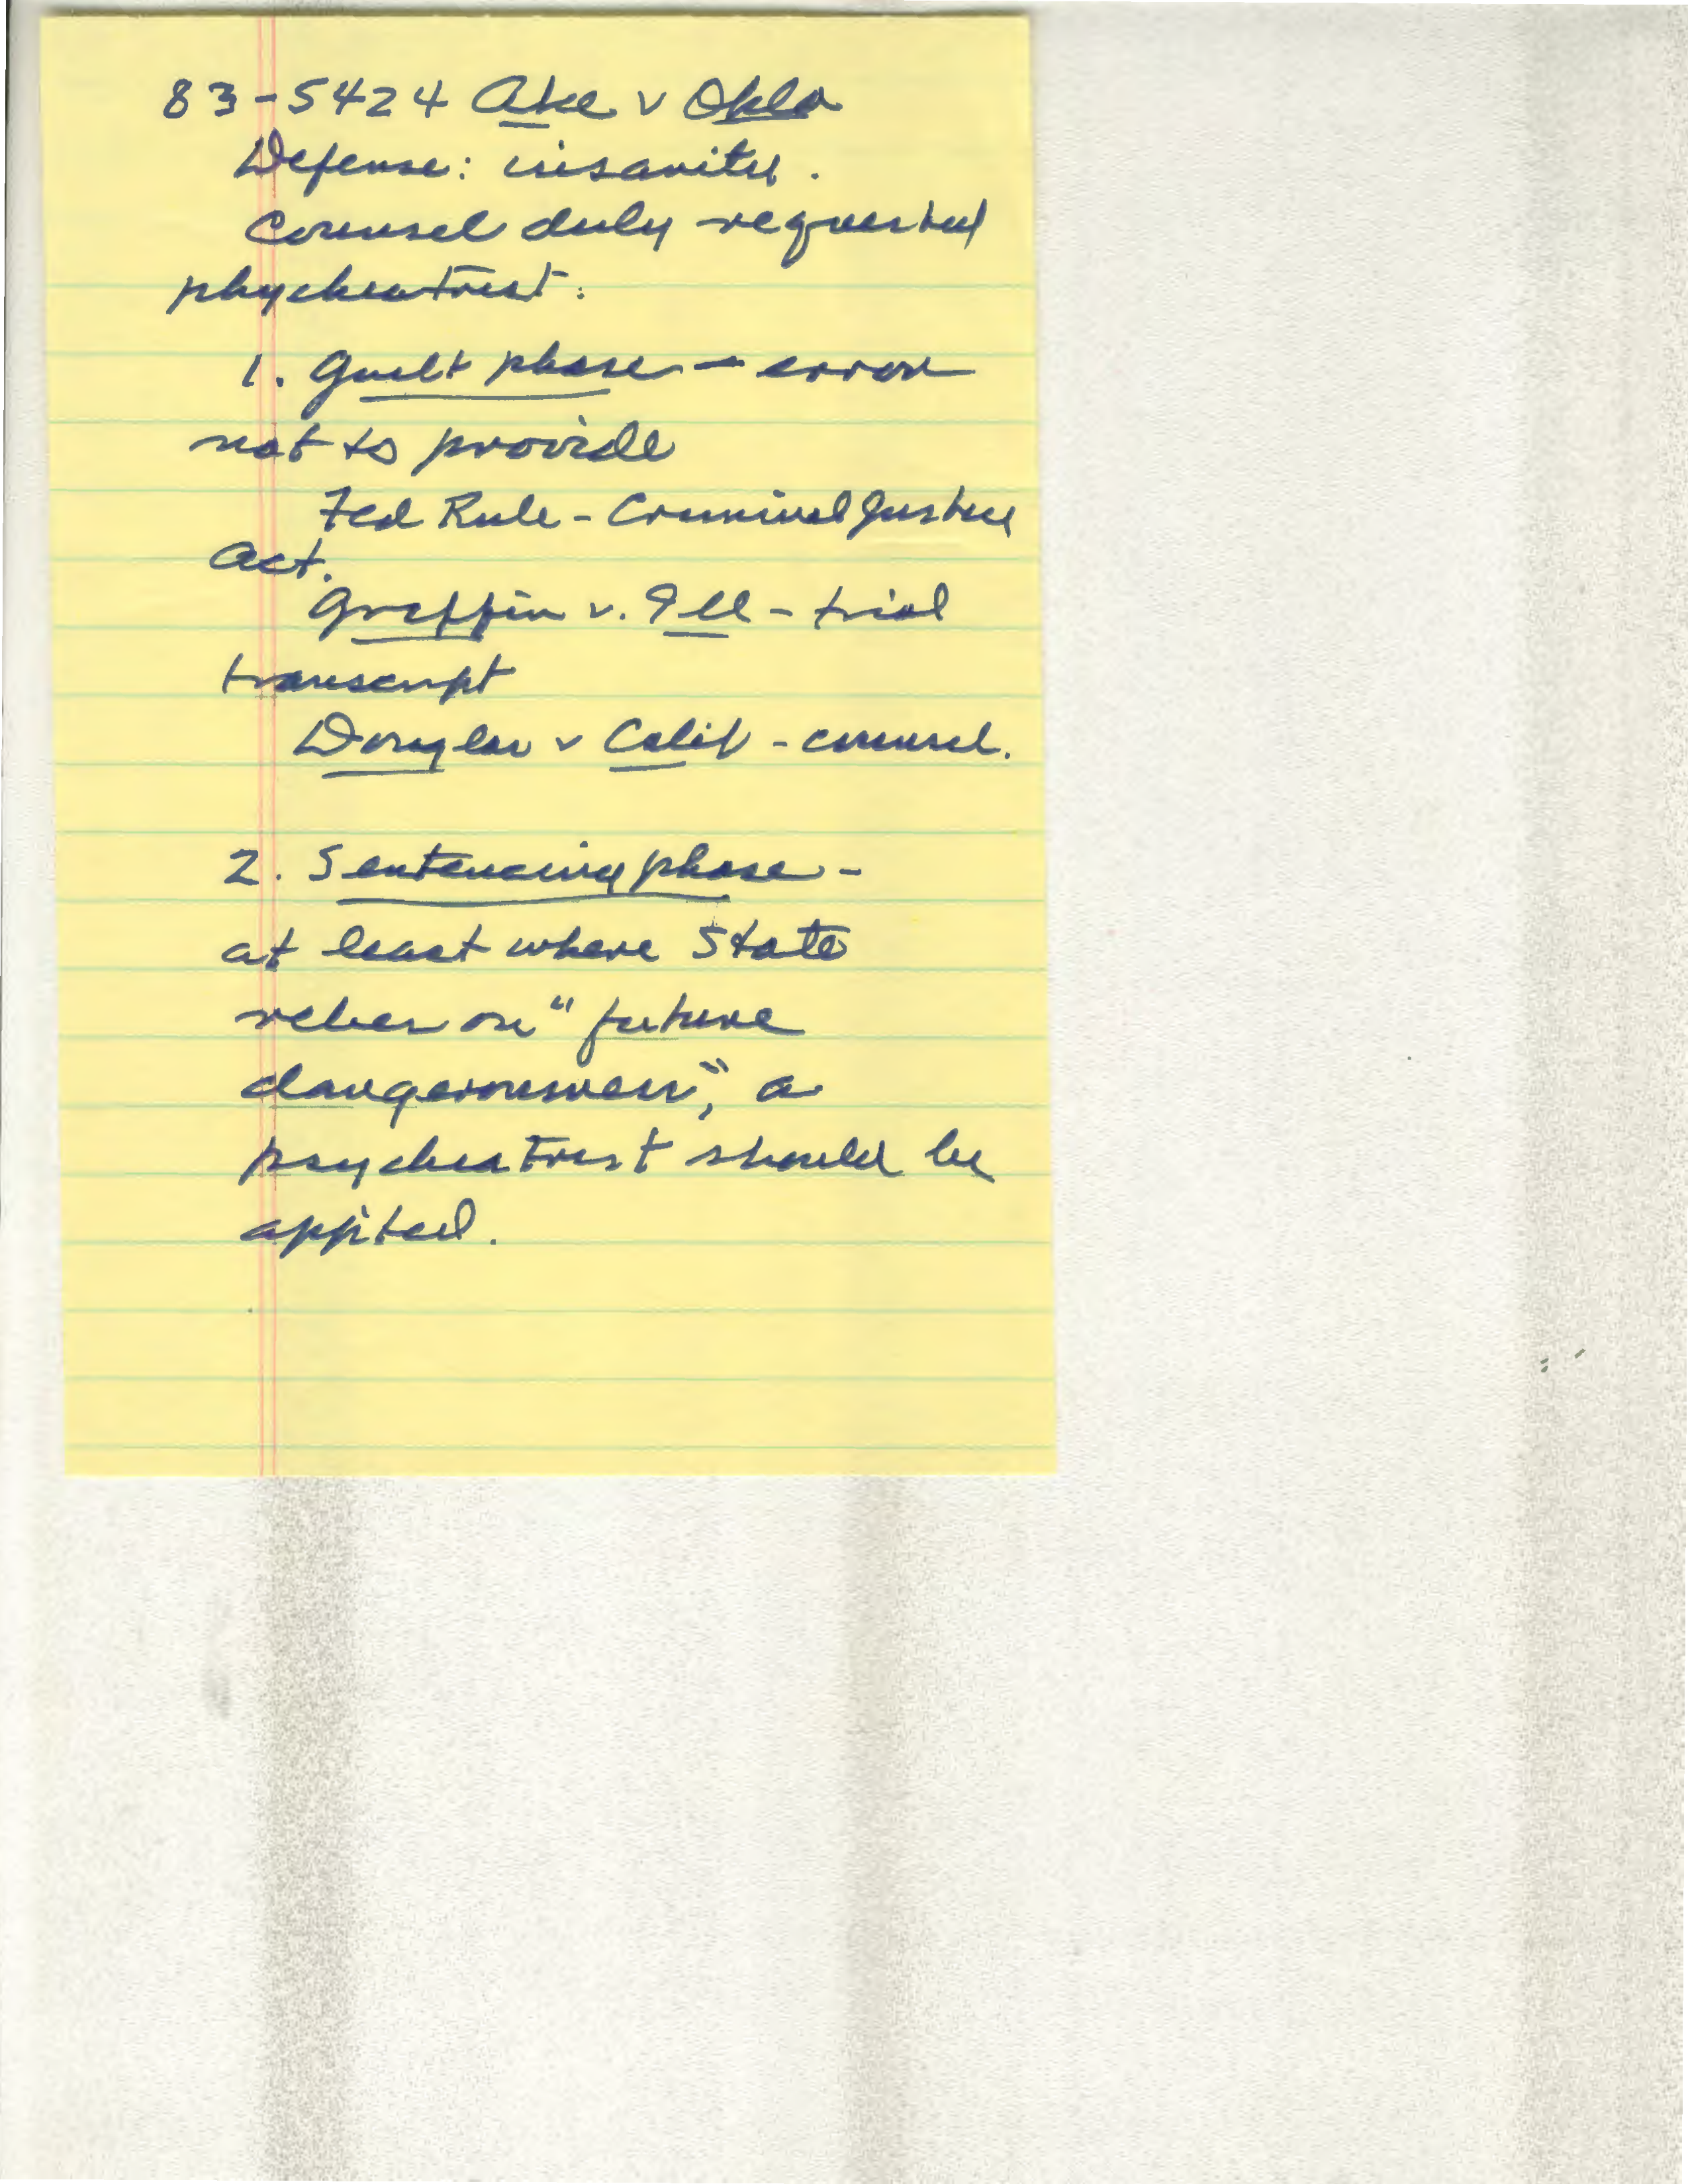 83-5424 Ake v Okla
Defense: insanity.
Counsel duly requested
phychiatrist:
1. Guilt phase - error
not to provide
Fed Rule - Criminal Justice
Act.
Griffin v. Ill - trial
transcript
Douglas v Calif - counsel.
2. Sentencing phase -
at least where State
relies on "future
dangerousness", a
psychiatrist should be
appited.